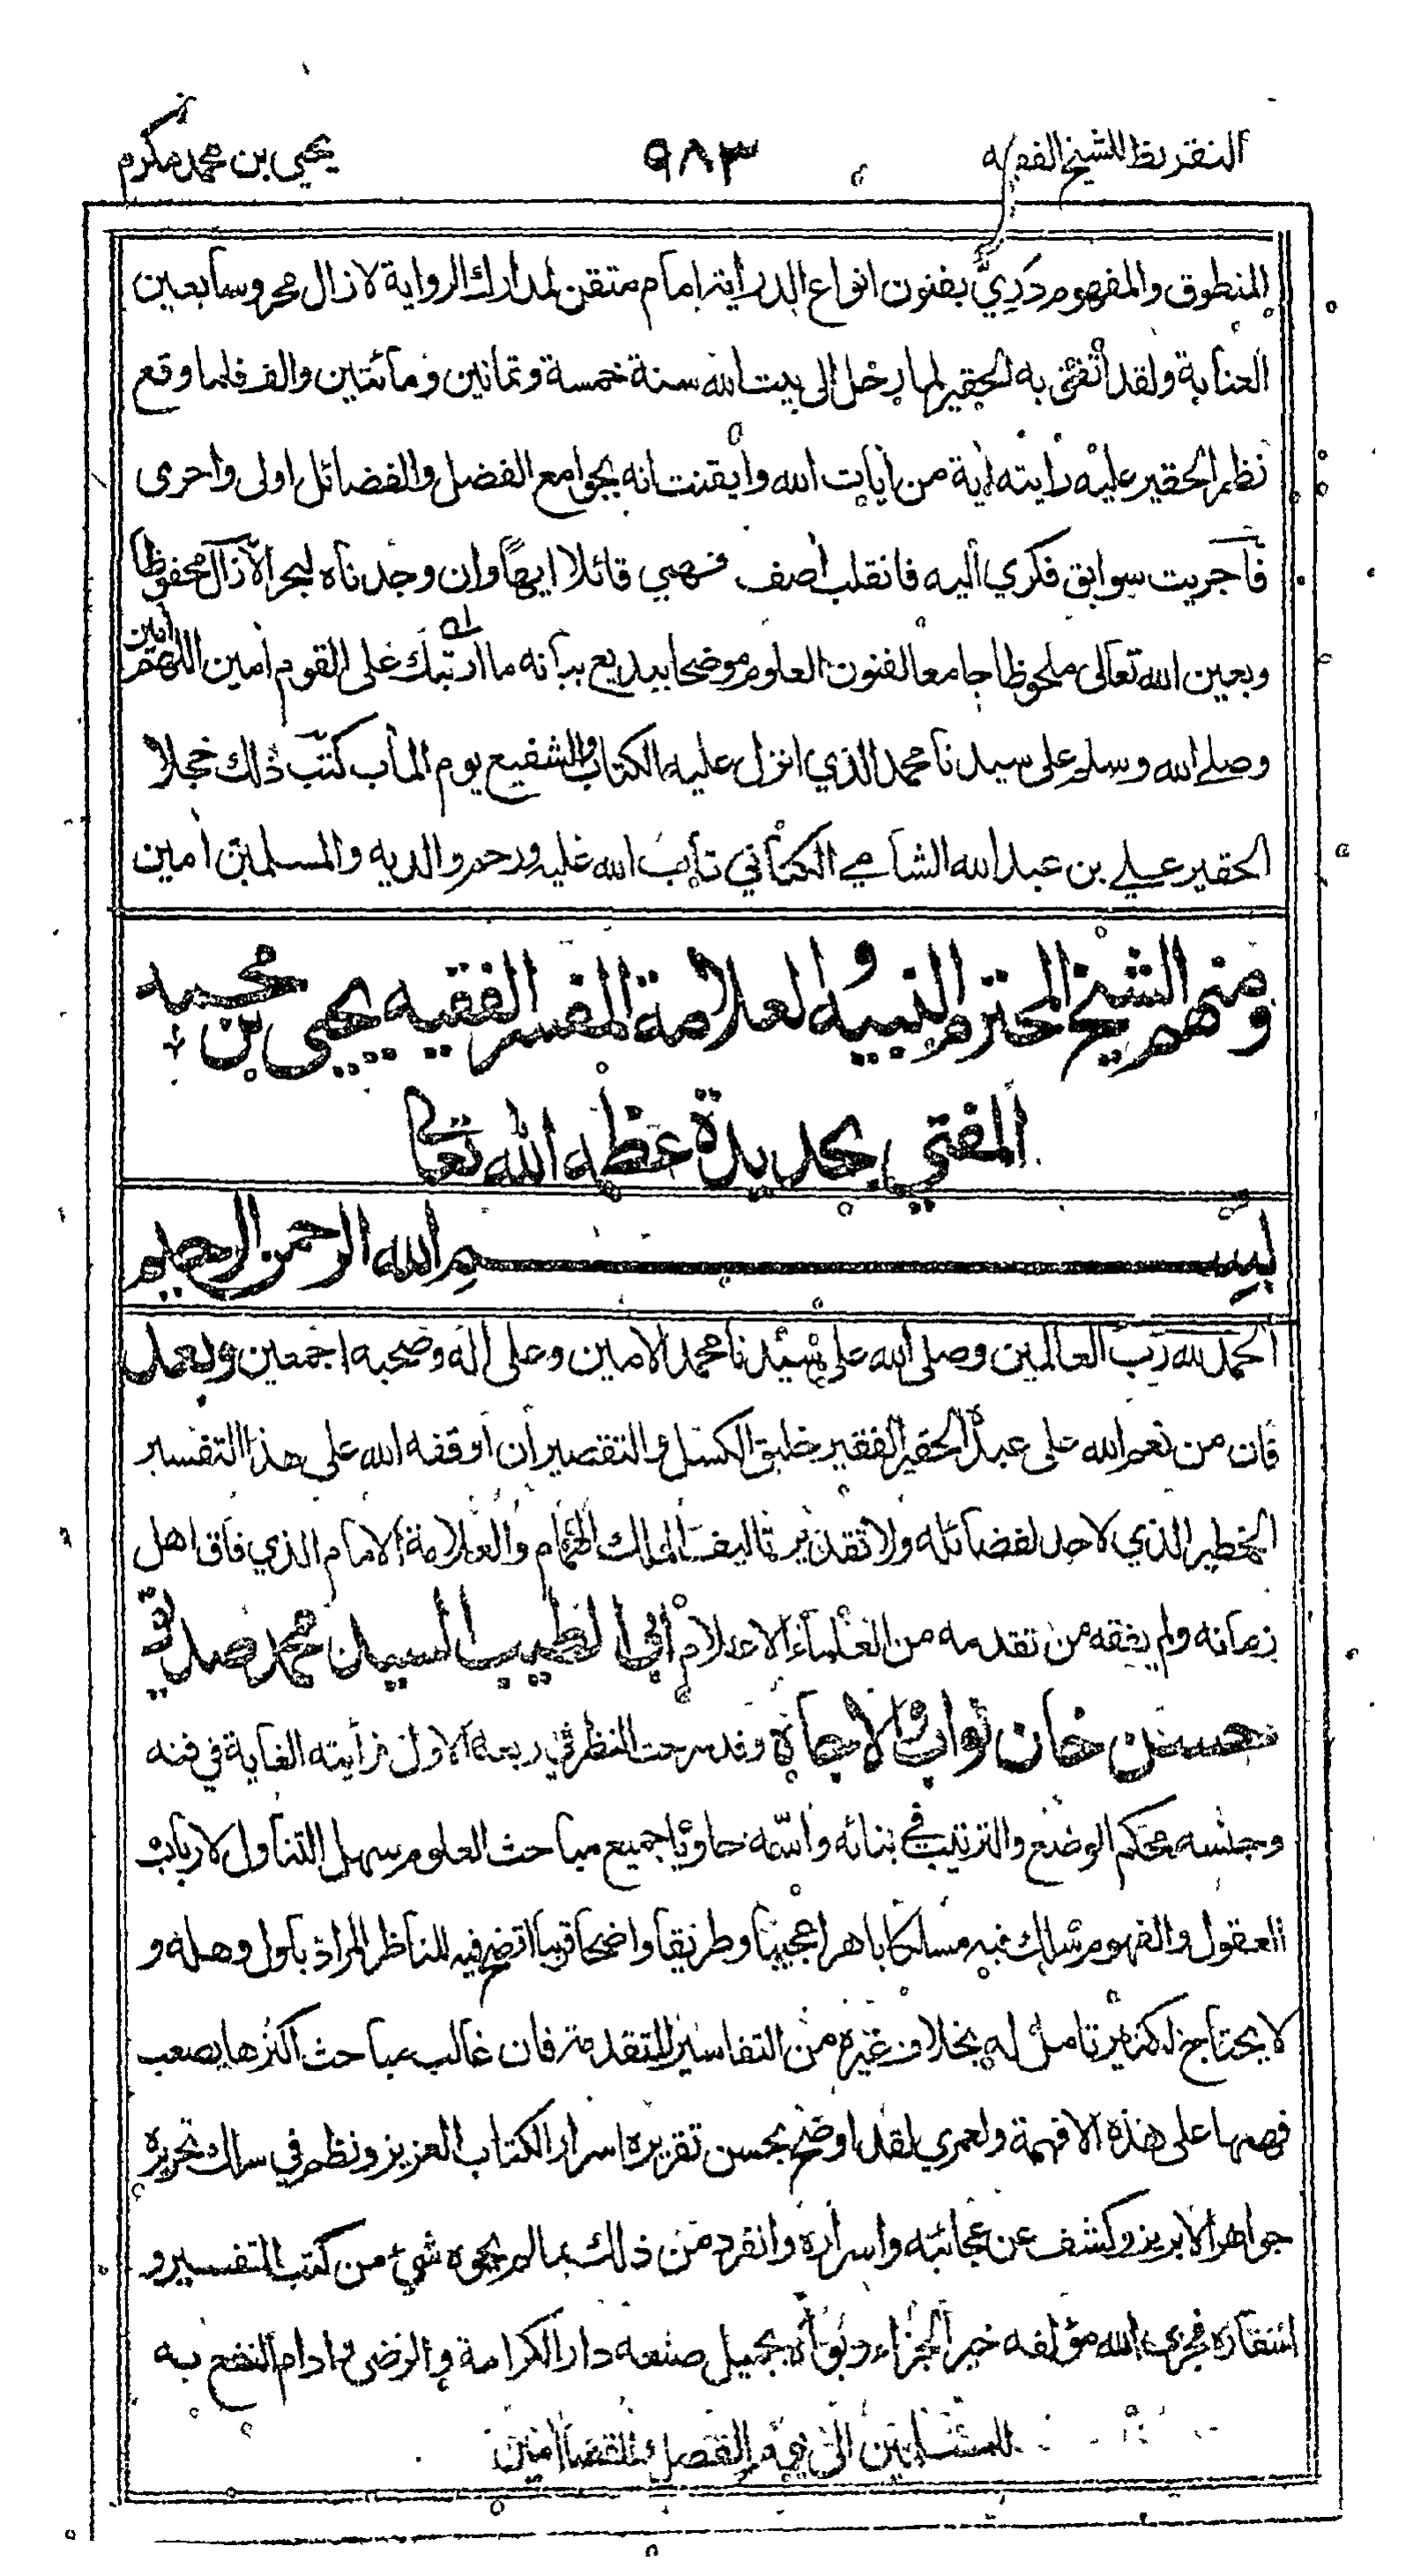 التقريظ للشيخ الفقيه ٩٨٣ يحيى بن محمد مكرم
المنطوق والمفهوم دَرِيٌّ بفنون انواع الدراية امام متقن لمدارك الرواية لازال محروسا بعين
العناية ولقد به الحقير لما رحل الى بيت الله سنة خمسة وثمانين ومائتين والف فلما وقع
نظر الحقير عليه رايته اية من أيات الله وأيقنت انه بجوامع الفضل والفضائل اولى واحرى
فأجريت سوابق فكري اليه فانقلب أصف قائلا ايهاً وان وجدناه لبحرا لازال محفوظا
وبعين الله تعالى ملحوظا جامعا لفنون العلوم موضحا ببديع بيانه ما ارتبك على القوم أمين اللهم أمين
وصلى الله وسلم على سيدنا محمد الذي انزل عليه الكتاب والشفيع يوم المأب كتب ذلك خجلا
الحقير علي بن عبد الله الشامي تاب الله عليه ورحم والديه والمسلمين أمين
ومنهم الشيخ المحترم النبيه والعلامة المفسر الفقيه يحيى بن محمد
المفتي بحديدة حفظه الله تعالى
بسم الله الرحمن الرحيم
الحمد لله رب العالمين وصلى الله على سيدنا محمد الامين وعلى أله وصحبه اجمعين وبعد
فان من نعم الله على عبده الحقير الفقير الكسل والتقصير أن أوقفه الله على هذا التفسير
الخطير الذي لاحد لفضائله ولا تقدير تاليف الملك الهمام والعلامة الامام الذي فاق اهل
زمانه ولم يفقه من تقدمه من العلماء الاعلام أبي الطيب السيد محمد صديق
حسن خان نواب الاجاه وقد سرحت النظر في ربعه الاول فرأيته الغاية في فنه
وجنسه محكم الوضع والترتيب في بنائه واسه حاويا جميع مباحث العلوم سهل التناول لارباب
العقول والفهوم سلك فيه مسلكا باهرا عجيبا وطريقا واضحا قريبا اتضح فيه للناظر المراد باول وهلة و
لا يحتاج لكثير تامل له بخلاف غيره من التفاسير المتقدمة فان غالب مباحث اكثرها يصعب
فهمها على هذه الافهمة ولعمري لقد اوضح بحسن تقريره اسرار الكتاب العزيز ونظم في سلك تحريره
جواهر الابريز وكشف عن عجائبه واسراره وانفرد من ذلك بمالم يحوه شيء من كتب التفسير و
اسفاره فجزى الله مؤلفه خير الجزاء وبوأه بجميل صنعه دار الكرامة والرضى وادام النفع به
للمسلمين الى يوم الفصل والقضا أمين